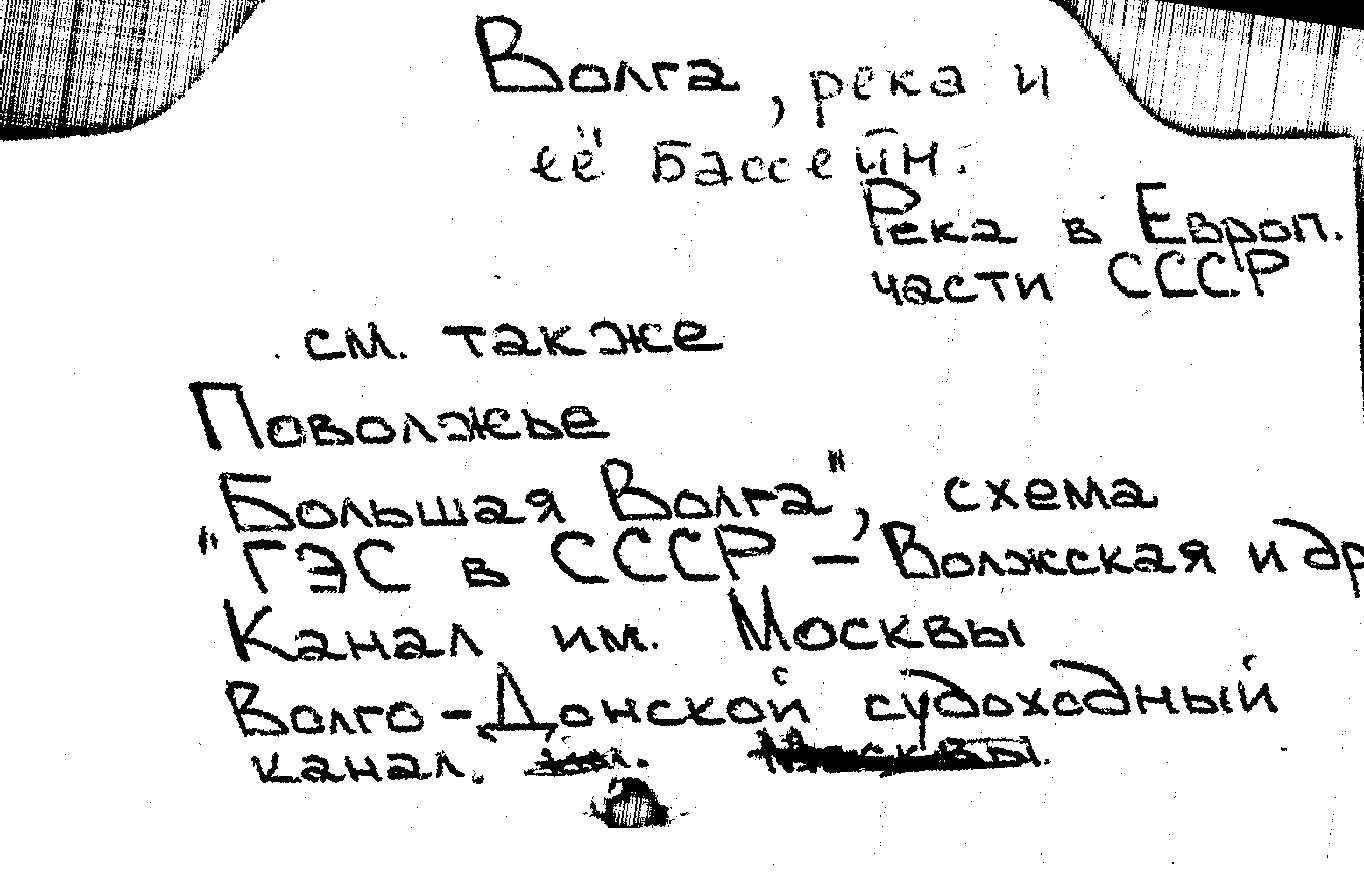 Волга, река и
её бассейн.
Река в Европ.
части СССР
см. также
Поволжье
"Большая Волга", схема
ГЭС в СССР – Волжская и др
Канал им. Москвы
Волго-Донской судоходный
канал. им. Москвы.